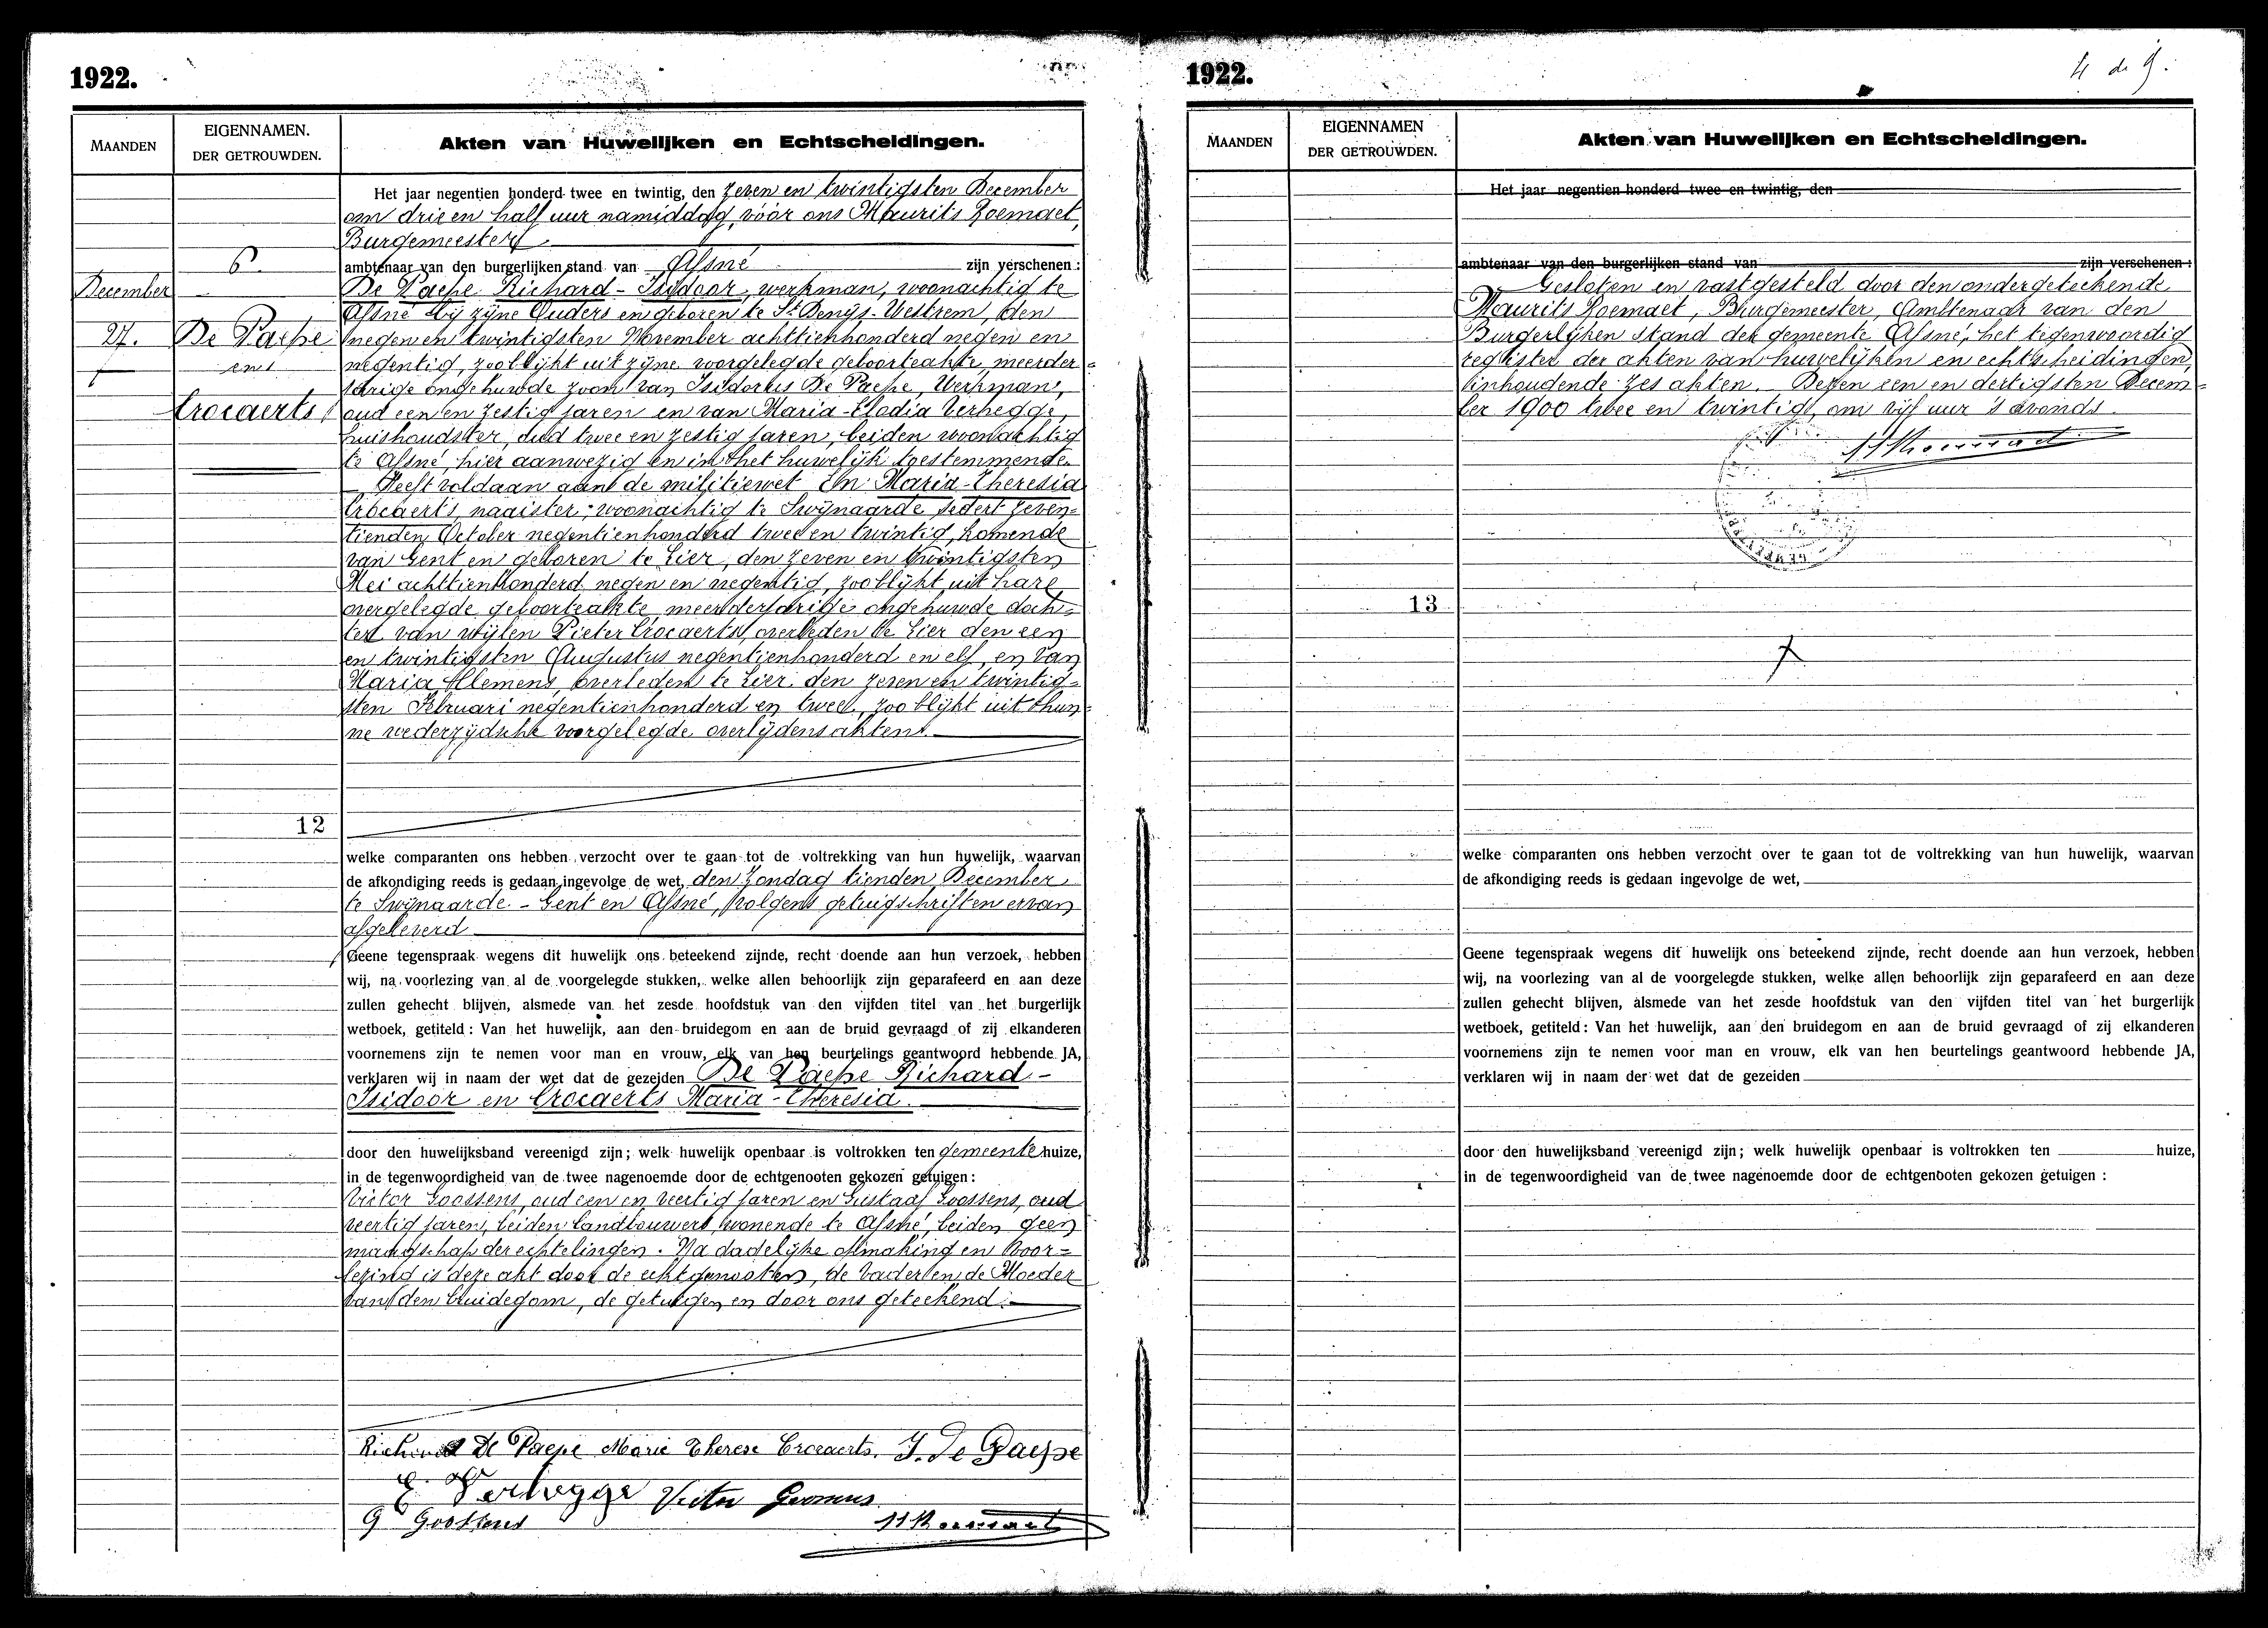 1922.
MAANDEN
EIGENNAMEN.
DER GETROUWDEN.
Akten van Huwelijken en Echtscheidingen.
6.
December
27.
De Paepe
en
Crocaerts
12
Het jaar negentien honderd twee en twintig, den zeven en twintigsten December
om drie en half uur namiddag, vóór ons Maurits Roemaet,
Burgemeester
ambtenaar van den burgerlijken stand van Afsné zijn verschenen :
De Paepe Richard - Isidoor, werkman, woonachtig te
Afsné bij zijne Ouders en geboren te St Denijs-Westrem, den
negen en twintigsten November achttienhonderd negen en
negentig, zoo blijkt uit zijne voorgelegde geboorteakte, meerder=
jarige ongehuwde zoon van Isidorus De Paepe, Werkman,
oud een en zestig jaren en van Maria-Elodia Verhegge,
huishoudster, oud twee en zestig jaren, beiden woonachtig
te Afsné, hier aanwezig en in het huwelijk toestemmende.
Heeft voldaan aan de militiewet En Maria-Theresia
Crocaerts, naaister, woonachtig te Swijnaarde sedert zeven=
tienden October negentienhonderd twee en twintig, komende
van Gent en geboren te Lier, den zeven en twintigsten
Mei achttienhonderd negen en negentig, zoo blijkt uit hare
overgelegde geboorteakte, meerderjarige ongehuwde doch=
ter van wijlen Pieter Crocaerts, overleden te Lier den een
en twintigsten Augustus negentienhonderd en elf, en van
Maria Clemens, overleden te Lier den zeven en twintig=
sten Februari negentienhonderd en twee, zoo blijkt uit hun=
ne wederzijdsche voorgelegde overlijdensakten.
welke comparanten ons hebben verzocht over te gaan tot de voltrekking van hun huwelijk, waarvan
de afkondiging reeds is gedaan ingevolge de wet, den Zondag tienden December
te Swijnaarde - Gent en Afsné, volgens getuigschriften ervan
afgeleverd
Geene tegenspraak wegens dit huwelijk ons beteekend zijnde, recht doende aan hun verzoek, hebben
wij, na voorlezing van al de voorgelegde stukken, welke allen behoorlijk zijn geparafeerd en aan deze
zullen gehecht blijven, alsmede van het zesde hoofdstuk van den vijfden titel van het burgerlijk
wetboek, getiteld : Van het huwelijk, aan den bruidegom en aan de bruid gevraagd of zij elkanderen
voornemens zijn te nemen voor man en vrouw, elk van hen beurtelings geantwoord hebbende JA,
verklaren wij in naam der wet dat de gezeiden De Paepe Richard -
Isidoor en Crocaerts Maria-Theresia.
door den huwelijksband vereenigd zijn ; welk huwelijk openbaar is voltrokken ten gemeentehuize,
in de tegenwoordigheid van de twee nagenoemde door de echtgenooten gekozen getuigen :
Victor Goossens, oud een en veertig jaren en Gustaaf Goossens, oud
veertig jaren, beiden landbouwers, wonende te Afsné, beiden geen
maagschap der echtelingen. Na dadelijke opmaking en voor=
lezing is deze akt door de echtgenooten, de Vader en de Moeder
van den bruidegom, de getuigen en door ons geteekend.
Richard De Paepe Marie Therese Crocaerts. J. De Paepe
E. Verhegge Victor Goossens
G Goossens M Roemaet
1922.
4 de
MAANDEN
EIGENNAMEN
DER GETROUWDEN.
Akten van Huwelijken en Echtscheidingen.
13
Het jaar negentien honderd twee en twintig, den
ambtenaar van den burgerlijken stand van zijn verschenen :
Gesloten en vastgesteld door den ondergeteekende
Maurits Roemaet, Burgemeester, Ambtenaar van den
Burgerlijken stand der gemeente Afsné, het tegenwoordig
register der akten van huwelijken en echtscheidingen,
inhoudende zes akten. Dezen een en dertigsten Decem=
ber 1900 twee en twintig, om vijf uur 's avonds.
M Roemaet
welke comparanten ons hebben verzocht over te gaan tot de voltrekking van hun huwelijk, waarvan
de afkondiging reeds is gedaan ingevolge de wet,
Geene tegenspraak wegens dit huwelijk ons beteekend zijnde, recht doende aan hun verzoek, hebben
wij, na voorlezing van al de voorgelegde stukken, welke allen behoorlijk zijn geparafeerd en aan deze
zullen gehecht blijven, alsmede van het zesde hoofdstuk van den vijfden titel van het burgerlijk
wetboek, getiteld : Van het huwelijk, aan den bruidegom en aan de bruid gevraagd of zij elkanderen
voornemens zijn te nemen voor man en vrouw, elk van hen beurtelings geantwoord hebbende JA,
verklaren wij in naam der wet dat de gezeiden
door den huwelijksband vereenigd zijn ; welk huwelijk openbaar is voltrokken ten huize,
in de tegenwoordigheid van de twee nagenoemde door de echtgenooten gekozen getuigen :